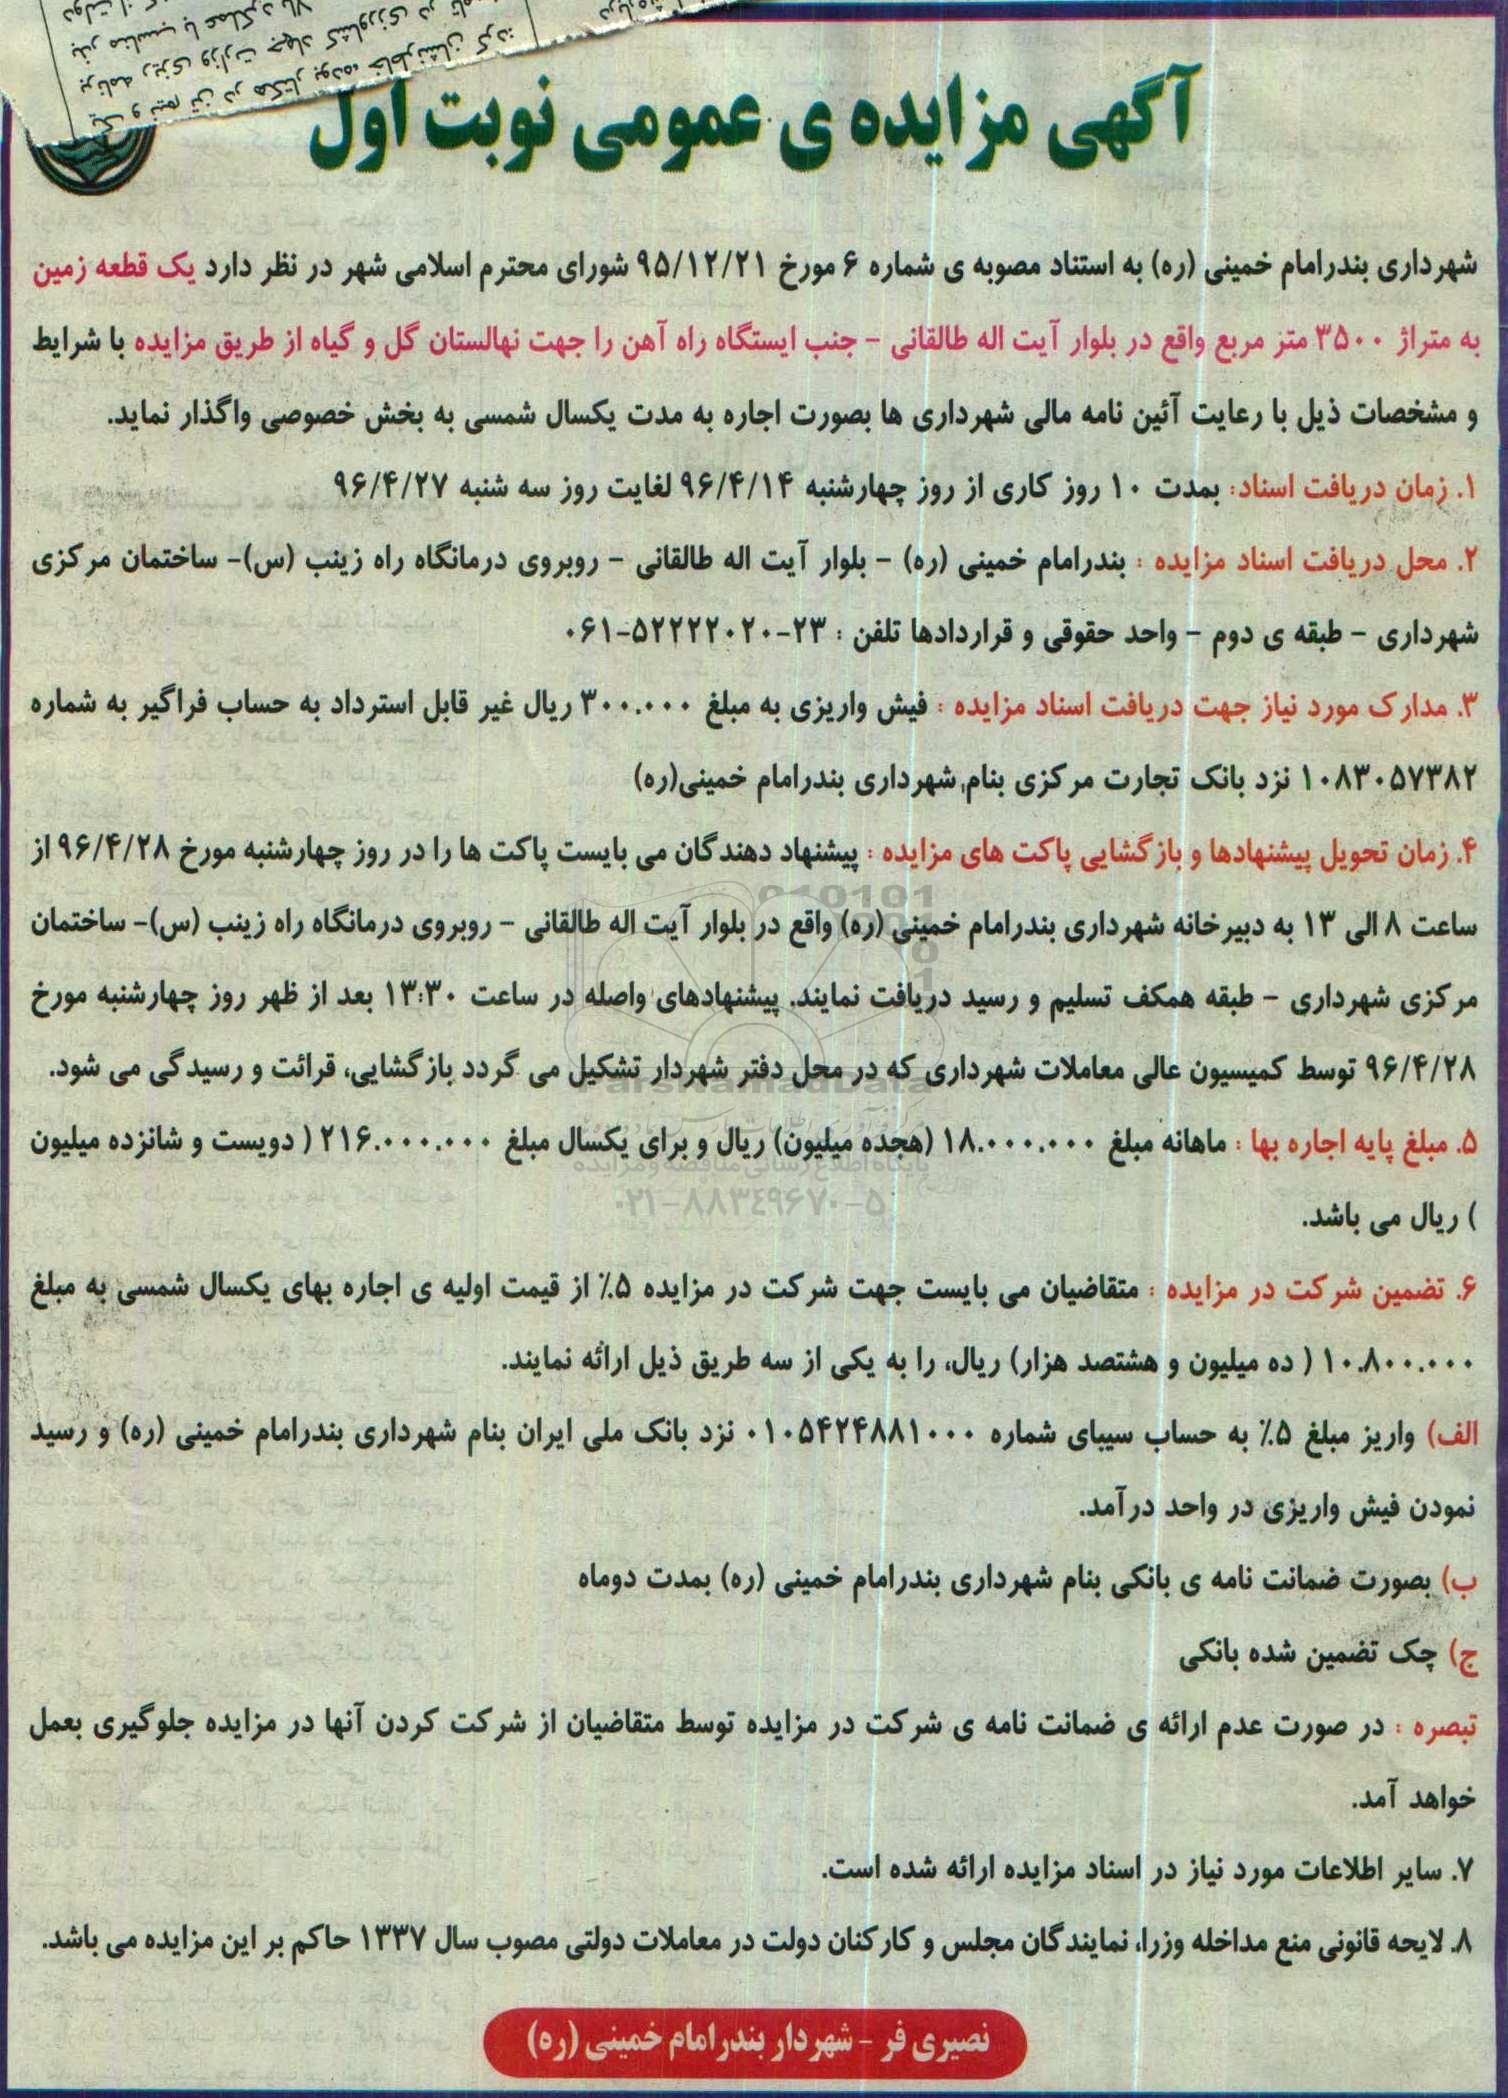 آگهی مزایده ی عمومی نوبت اول
شهرداری بندرامام خمینی (ره) به استناد مصوبه ی شماره ۶ مورخ ۹۵/۱۲/۲۱ شورای محترم اسلامی شهر در نظر دارد یک قطعه زمین
به متراژ ۳۵۰۰ متر مربع واقع در بلوار آیت اله طالقانی - جنب ایستگاه راه آهن را جهت نهالستان گل و گیاه از طریق مزایده با شرایط
و مشخصات ذیل با رعایت آئین نامه مالی شهرداری ها بصورت اجاره به مدت یکسال شمسی به بخش خصوصی واگذار نماید.
۱. زمان دریافت اسناد: بمدت ۱۰ روز کاری از روز چهارشنبه ۹۶/۴/۱۴ لغایت روز سه شنبه ۹۶/۴/۲۷
۲. محل دریافت اسناد مزایده : بندرامام خمینی (ره) - بلوار آیت اله طالقانی - روبروی درمانگاه راه زینب (س)- ساختمان مرکزی
شهرداری - طبقه ی دوم - واحد حقوقی و قراردادها تلفن : ۲۳-۵۲۲۲۲۰۲۰-۰۶۱
۳. مدارک مورد نیاز جهت دریافت اسناد مزایده : فیش واریزی به مبلغ ۳۰۰.۰۰۰ ریال غیر قابل استرداد به حساب فراگیر به شماره
۱۰۸۳۰۵۷۳۸۲ نزد بانک تجارت مرکزی بنام شهرداری بندرامام خمینی(ره)
۴. زمان تحویل پیشنهادها و بازگشایی پاکت های مزایده : پیشنهاد دهندگان می بایست پاکت ها را در روز چهارشنبه مورخ ۹۶/۴/۲۸ از
ساعت ۸ الی ۱۳ به دبیرخانه شهرداری بندرامام خمینی (ره) واقع در بلوار آیت اله طالقانی - روبروی درمانگاه راه زینب (س)- ساختمان
مرکزی شهرداری - طبقه همکف تسلیم و رسید دریافت نمایند. پیشنهادهای واصله در ساعت ۱۳:۳۰ بعد از ظهر روز چهارشنبه مورخ
۹۶/۴/۲۸ توسط کمیسیون عالی معاملات شهرداری که در محل دفتر شهردار تشکیل می گردد بازگشایی، قرائت و رسیدگی می شود.
۵. مبلغ پایه اجاره بها : ماهانه مبلغ ۱۸.۰۰۰.۰۰۰ (هجده میلیون) ریال و برای یکسال مبلغ ۲۱۶.۰۰۰.۰۰۰ ( دویست و شانزده میلیون
) ریال می باشد.
پایگاه اطلاع رسانی مناقصه و مزایده
۰۲۱-۸۸۳۴۹۶۷۰-۵
۶. تضمین شرکت در مزایده : متقاضیان می بایست جهت شرکت در مزایده ۵٪ از قیمت اولیه ی اجاره بهای یکسال شمسی به مبلغ
۱۰.۸۰۰.۰۰۰ ( ده میلیون و هشتصد هزار) ریال، را به یکی از سه طریق ذیل ارائه نمایند.
الف) واریز مبلغ ۵٪ به حساب سیبای شماره ۰۱۰۵۴۲۴۸۸۱۰۰۰ نزد بانک ملی ایران بنام شهرداری بندرامام خمینی (ره) و رسید
نمودن فیش واریزی در واحد درآمد.
ب) بصورت ضمانت نامه ی بانکی بنام شهرداری بندرامام خمینی (ره) بمدت دوماه
ج) چک تضمین شده بانکی
تبصره : در صورت عدم ارائه ی ضمانت نامه ی شرکت در مزایده توسط متقاضیان از شرکت کردن آنها در مزایده جلوگیری بعمل
خواهد آمد.
۷. سایر اطلاعات مورد نیاز در اسناد مزایده ارائه شده است.
۸. لایحه قانونی منع مداخله وزرا، نمایندگان مجلس و کارکنان دولت در معاملات دولتی مصوب سال ۱۳۳۷ حاکم بر این مزایده می باشد.
نصیری فر - شهردار بندرامام خمینی (ره)